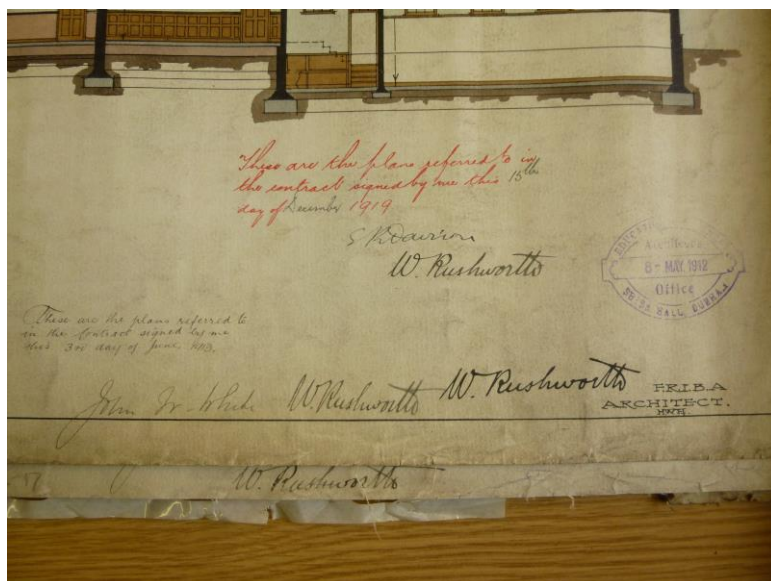 These are the plans referred to in
the contract signed by me this 15th
day of December 1919
W. Rushworth
EDUCATION
Architects
8 - MAY. 1912
Office
HALL, DURHAM
These are the plans referred to
in the Contract signed by me
this day of June
John W. White W. Rushworth W. Rushworth F.R.I.B.A
ARCHITECT.
W. Rushworth
17